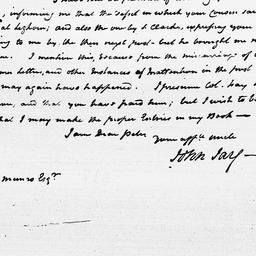 , informing me that the vessel in which your Cousin sai
at Leghorn; and also the one by S. Clarke, expressing your
ing to me by the then next post - but he brought me n
. I mention this, because from the miscarriage of
letter, and other Instances of Inattention in the post
may again have happened. I presume Col. Hay
, and that you have paid him; but I wish to b
that I may make the proper Entries in my Book —
I am Dear Peter your affte uncle
John Jay —
Munro Esqr.